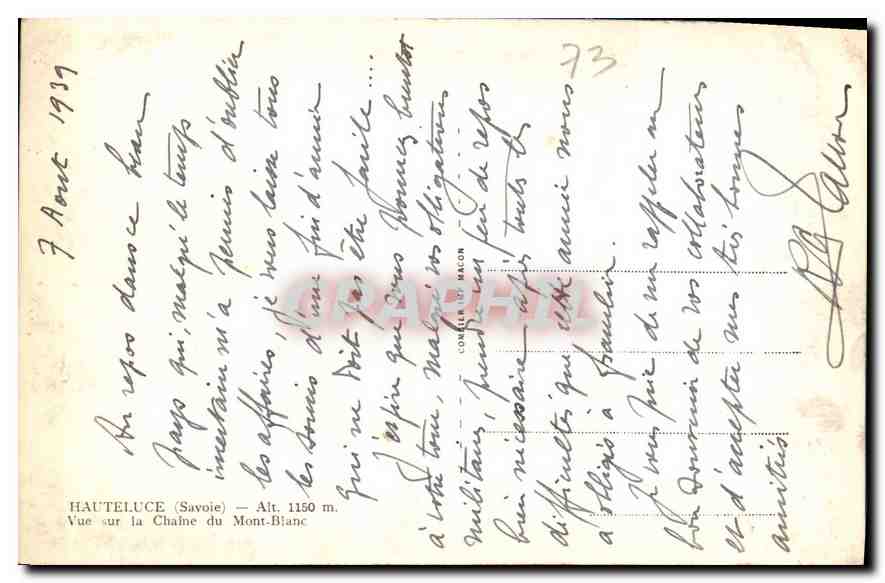 7 Aout 1939
Au repos dans ce beau
pays qui, malgré le temps
incertain m'a permis d'oublier
les affaires, je vous laisse tous
les soucis d'une fin d'année
qui ne doit pas être facile....
J'espère que vous pourrez bientot
à votre tour, malgré vos obligations
militaires, prendre un peu de repos
bien nécessaire après toutes les
difficultés que cette année nous
a obligés à
Je vous prie de me rappeler au
bon souvenir de vos collaborateurs
et d'accepter mes très bonnes
amitiés
73
COMBIER IMP MACON
CPAPHIL
HAUTELUCE (Savoie) — Alt. 1150 m.
Vue sur la Chaîne du Mont-Blanc